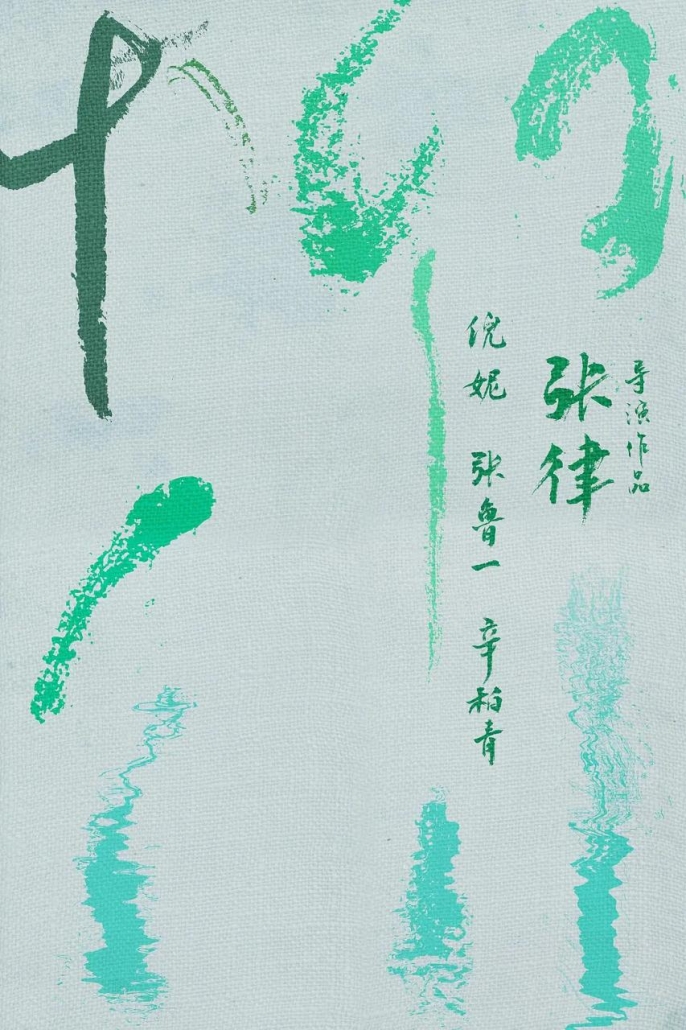 导演作品
张律
倪妮 张鲁一 辛柏青